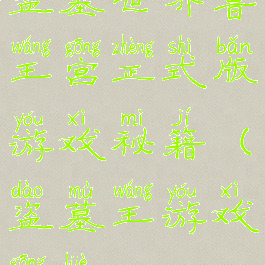 盗墓世界鲁
wáng gōng zhèng shì bǎn
王宫正式版
yóu xì mì jí
游戏秘籍（
dào mù wáng yóu xì
盗墓王游戏